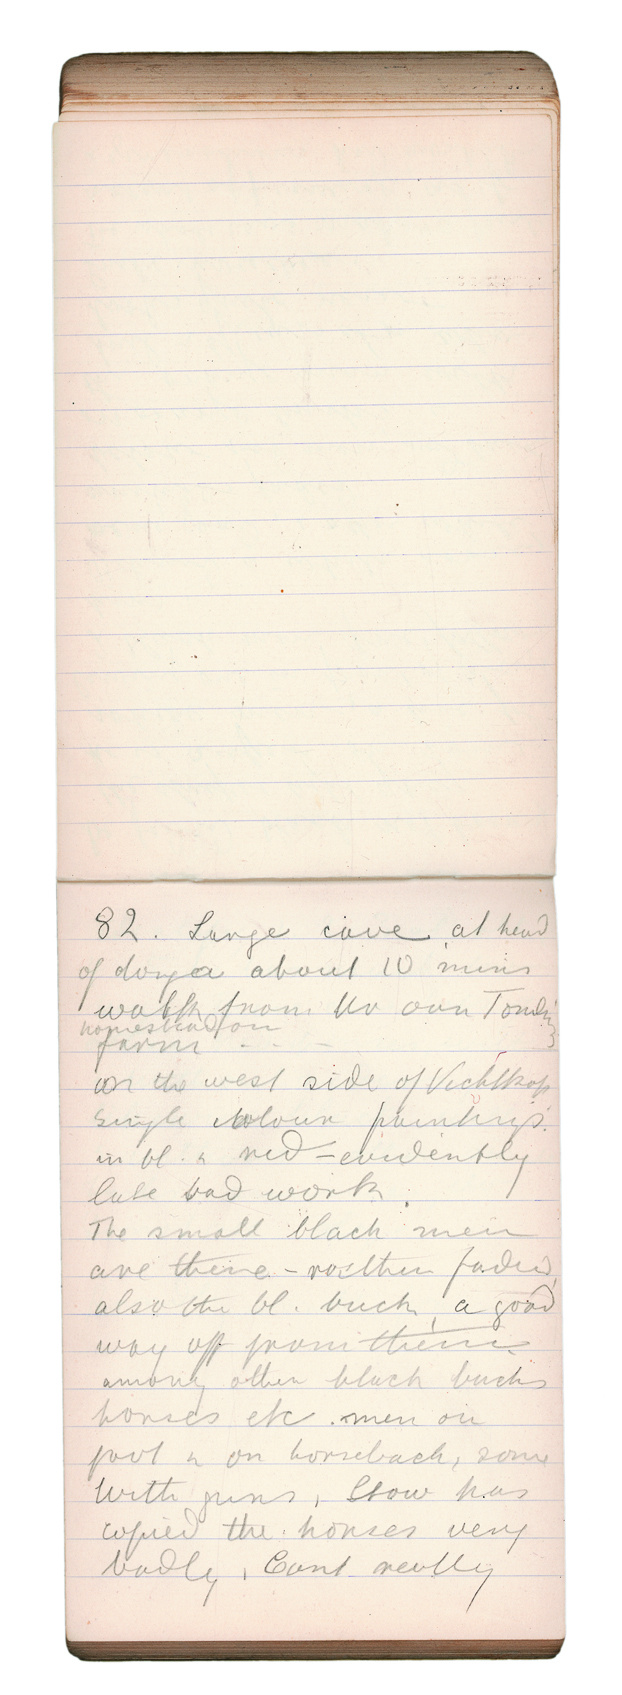 82. Large cave at head
of donga about 10 mins
walk from Mr
homestead on
farm - - -
on the west side of Vechtkop
Single colour paintings
in bl. & red – evidently
late bad work.
The small black men
are there – rather faded,
also the bl. buck, a good
way off from them
among other black bucks
horses etc. men on
foot & on horseback, some
with guns, Stow has
copied the horses very
badly, Cant really